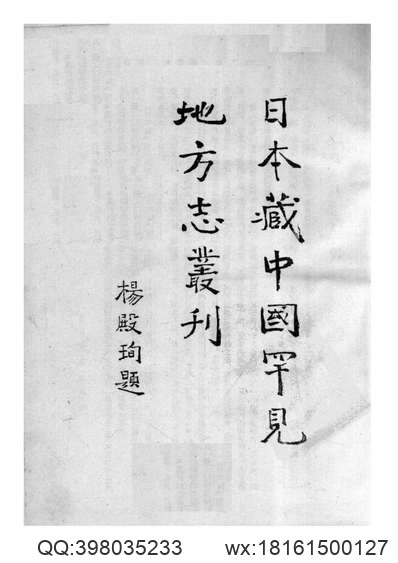 日本藏中國罕見
地方志叢刊
楊殿珣題
QQ:398035233 wx:18161500127